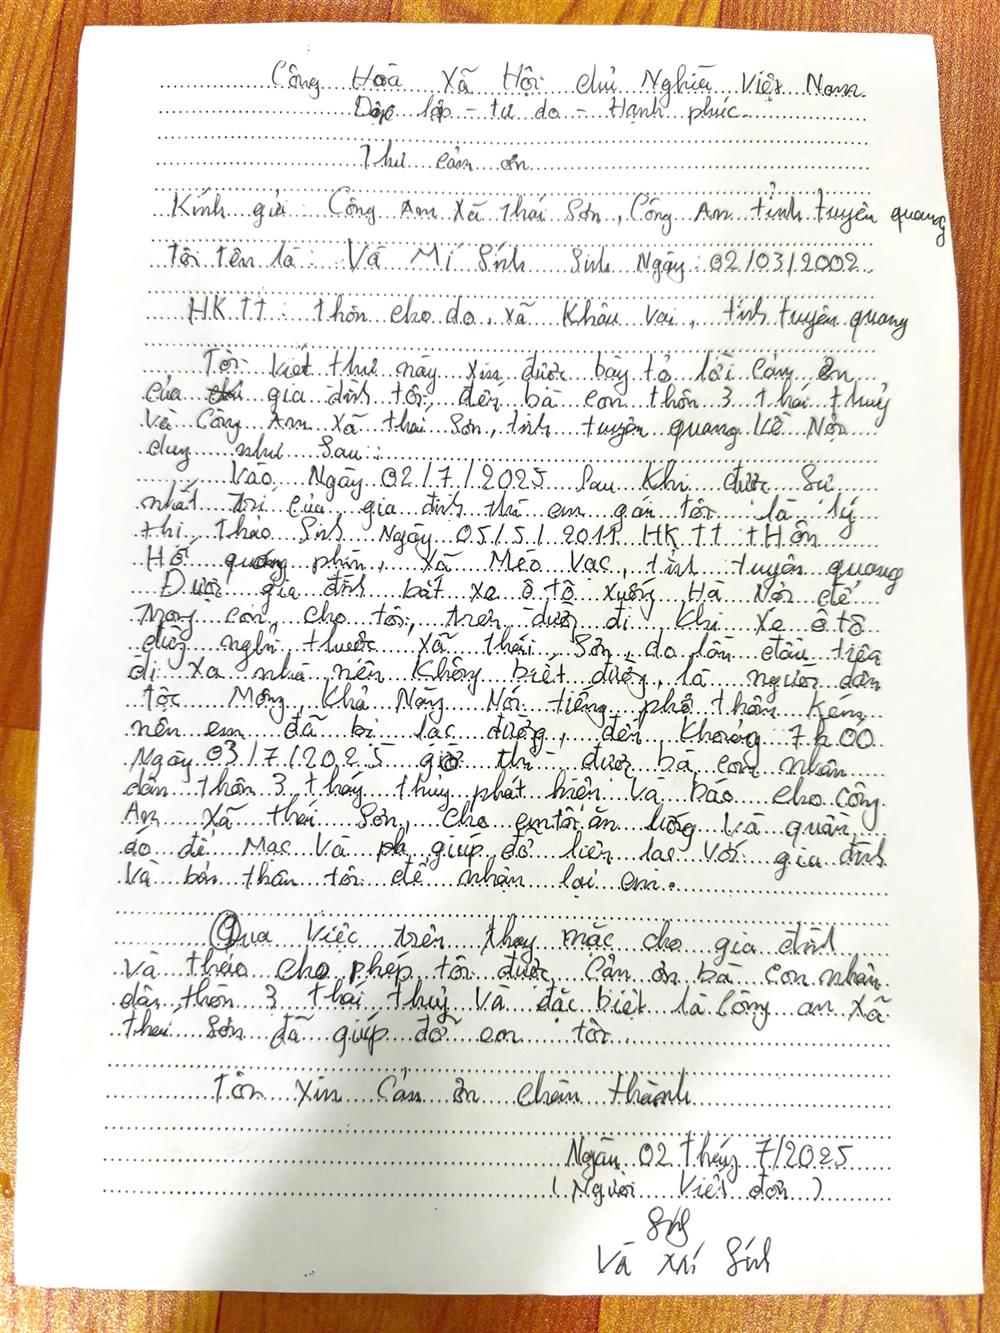 Công Hoà Xã Hội chủ Nghĩa Việt Nam
Độc lập - tự do - Hạnh phúc
Thư cảm ơn
Kính gửi: Công An Xã Thái Sơn, Công An tỉnh tuyên quang
Tôi tên là: Và Mí Sính Sinh Ngày: 02/03/2002
HKTT: thôn cho do, xã Khâu vai, tỉnh tuyên quang
Tôi viết thư này xin được bày tỏ lời cảm ơn
của gia đình tôi đến bà con thôn 3 thái thuỷ
và Công An xã thái Sơn, tỉnh tuyên quang về Nội
dung như Sau:
Vào Ngày 02/7/2025 Sau Khi được Sự
nhất trí của gia đình thì em gái tôi là lý
thị thảo Sinh Ngày 05/5/2011 HKTT tHôn
Hố quáng phìn, xã Mèo Vạc, tỉnh tuyên quang
Được gia đình bắt xe ô tô xuống Hà Nội để
trong con cho tôi, trên đường đi Khi xe ô tô
dừng nghỉ thuộc xã thái Sơn, do lần đầu tiên
đi xa nhà nên Không biết đường, là người dân
tộc Mông, Khả Năng Nói tiếng phổ thôn Kém
nên em đã bị lạc đường, đến Khoảng 7h00
Ngày 03/7/2025 giờ thì được bà con nhân
dân thôn 3 tháy thủy phát hiện và báo cho công
An xã thái Sơn, cho em tôi ăn Uống và quần
áo để Mạc Và giúp đỡ liên lạc với gia đình
Và bản thân tôi để nhận lại em.
Qua việc trên thay mặc cho gia đình
và thảo cho phép tôi được Cản ơn bà con nhân
dân thôn 3 thái thuỷ và đặc biệt là Công an xã
thái Sơn đã giúp đỡ em tôi
Tôi xin Cản ơn chân thành
Ngày 02 tháng 7/2025
(Người viết đơn)
Sính
Và Mí Sính